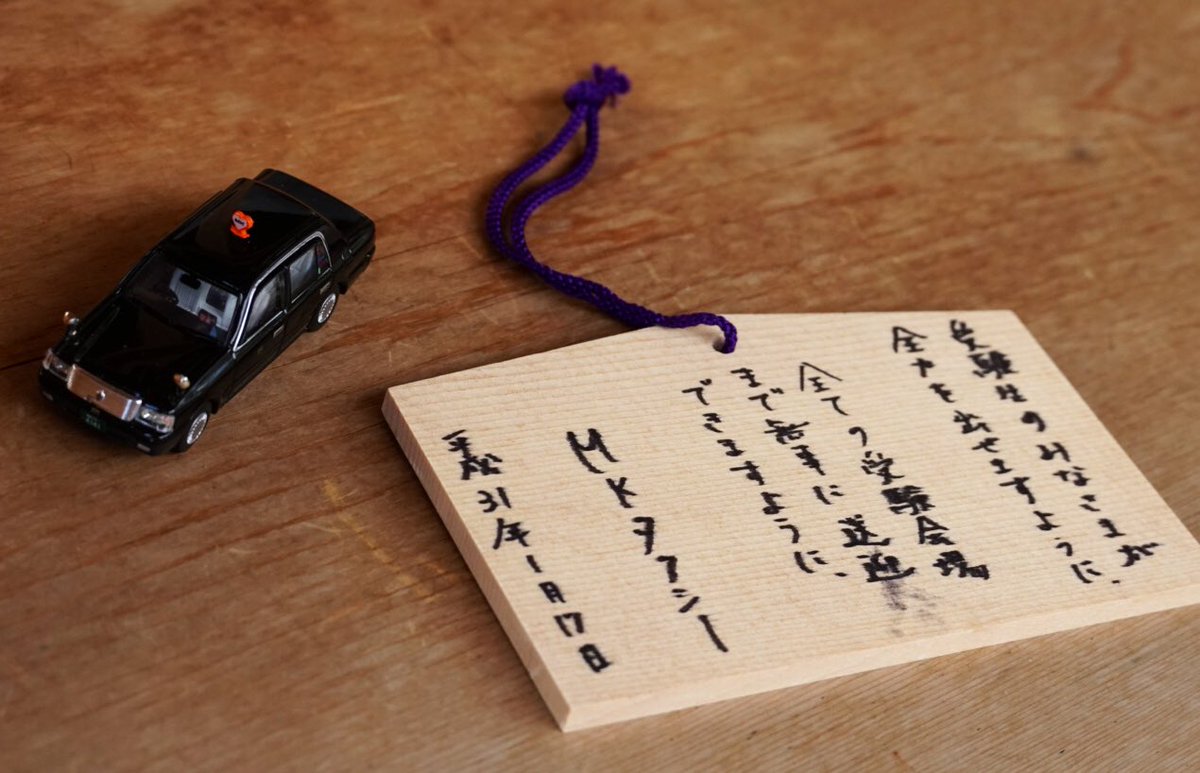 受験生のみなさまが
全力を出せますように.
全ての受験会場
まで無事に送迎
できますように.
MKタクシー
平成31年1月17日